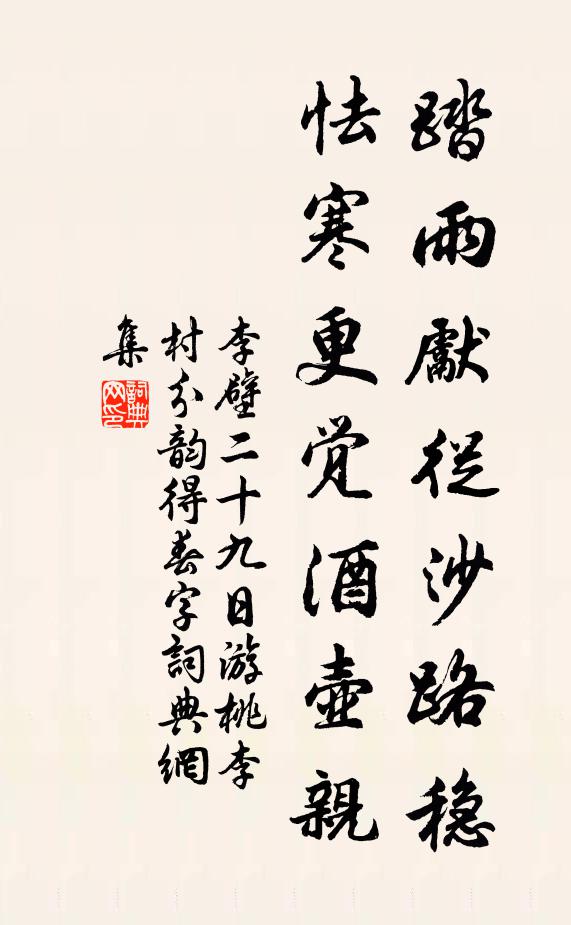 踏雨獻從沙路稳
怯寒更觉酒壺親
李壁二十九日游桃李
村分韵得春字詞典網
集
詞典网印